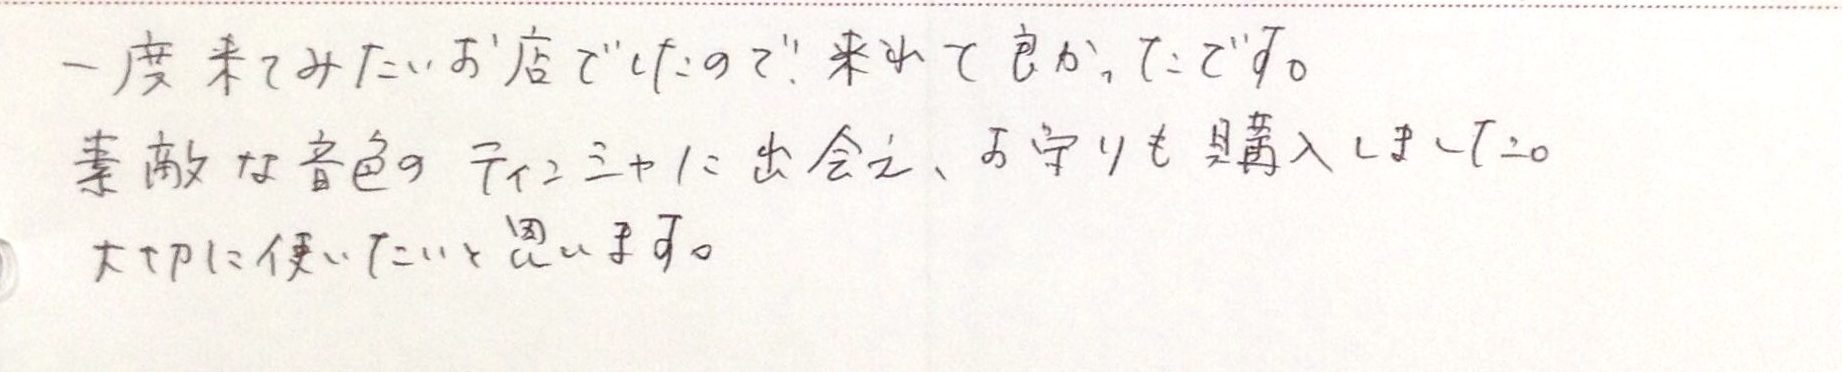 一度来てみたいお店でしたので、来れて良かったです。
素敵な音色のティンシャに出会え、お守りも購入しました。
大切に使いたいと思います。